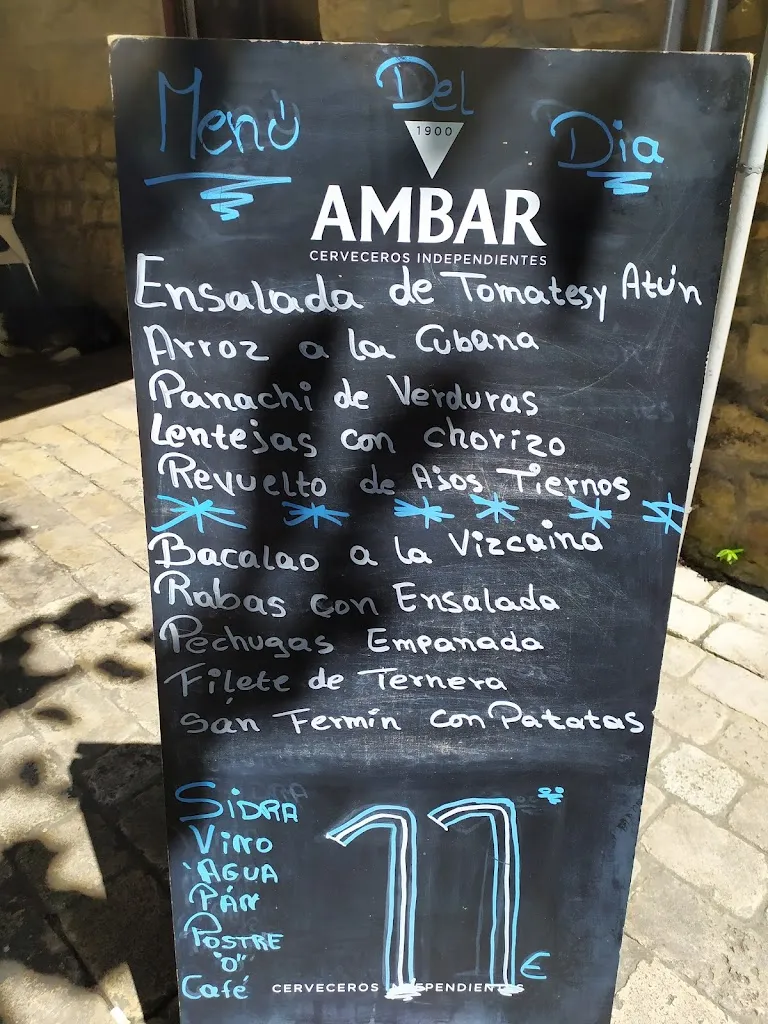 Menú Del Dia
1900
AMBAR
CERVECEROS INDEPENDIENTES
Ensalada de Tomates y Atún
Arroz a la Cubana
Panachi de Verduras
Lentejas con chorizo
Revuelto de Ajos Tiernos
Bacalao a la Vizcaina
Rabas con Ensalada
Pechugas Empanada
Filete de Ternera
San Fermín con Patatas
SIDRA
VINO
AGUA
PÁN
POSTRE
"O"
Café
11 €
CERVECEROS INDEPENDIENTES